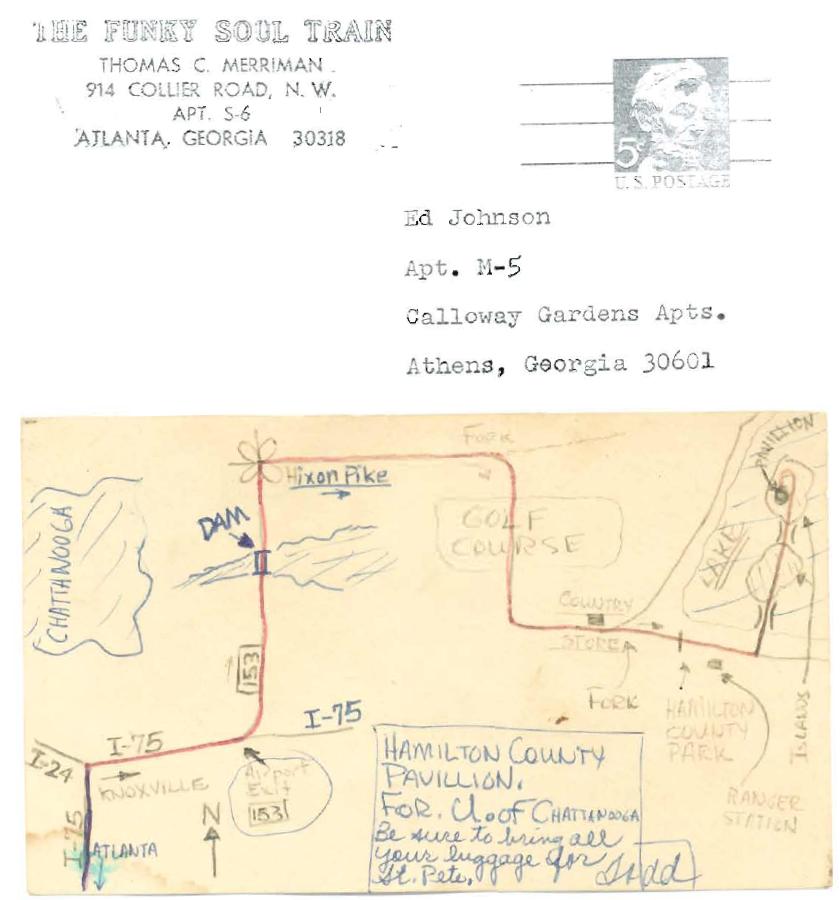 THE FUNKY SOUL TRAIN
THOMAS C. MERRIMAN
914 COLLIER ROAD, N. W.
APT. S-6
ATLANTA, GEORGIA 30318
5¢
U.S. POSTAGE
Ed Johnson
Apt. M-5
Calloway Gardens Apts.
Athens, Georgia 30601
FORK
PAVILLION
Hixon Pike
CHATTANOOGA
DAM
GOLF
COURSE
LAKE
COUNTRY
STORE
153
FORK
HAMILTON
COUNTY
PARK
ISLANDS
I-75
I-75
I-24
KNOXVILLE
Airport
Exit
153
RANGER
STATION
N
I-75
ATLANTA
HAMILTON COUNTY
PAVILLION.
FOR. U. of CHATTANOOGA
Be sure to bring all
your luggage for
St. Pete.
Todd